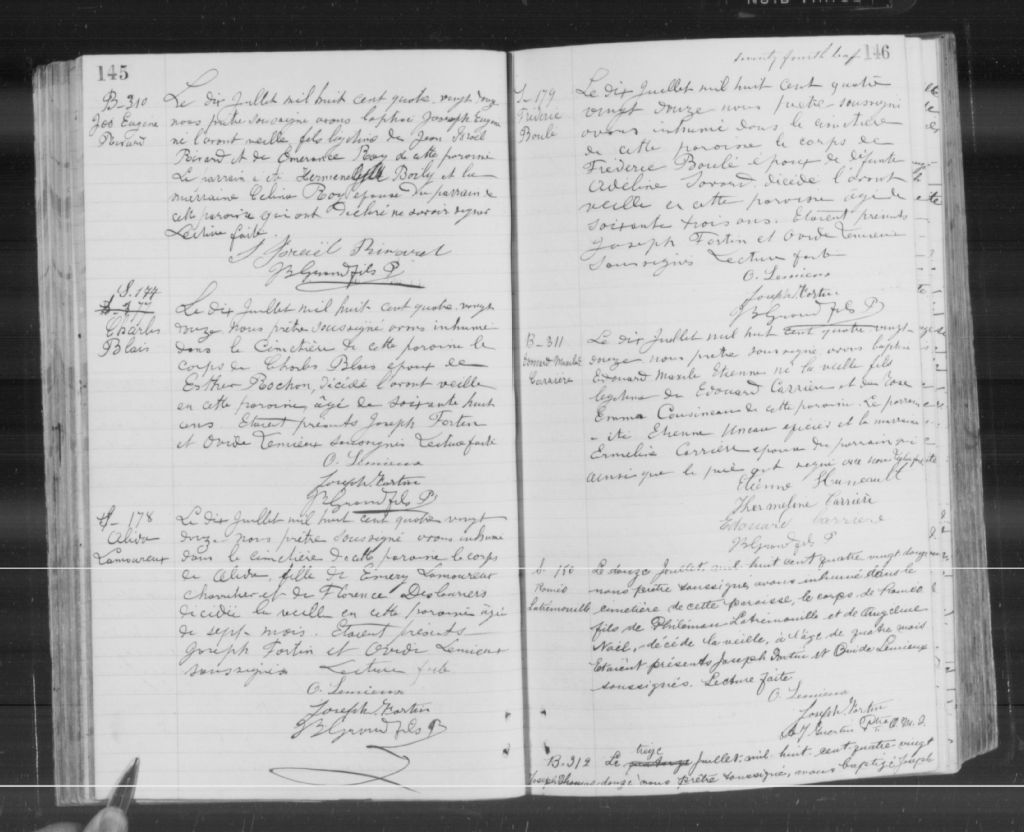 145
B-310
Jos Eugène
Rivard
Le dix Juillet mil huit cent quatre-vingt douze
nous prêtre soussigné avons baptisé Joseph Eugène
né l'avant veille fils légitime de Jean Israël
Rivard et de Emerance Roy de cette paroisse
Le parrain a été Boily et la
marraine Celina Roy épouse du parrain de
cette paroisse qui ont déclaré ne savoir signer
Lecture faite.
J Israël Rivard
JB Girard fils P
S. 177
Charles
Blais
Le dix Juillet mil huit cent quatre-vingt
douze nous prêtre soussigné avons inhumé
dans le Cimetière de cette paroisse le
corps de Charles Blais époux de
Esther Rochon, décédé l'avant veille
en cette paroisse, âgé de soixante huit
ans. Etaient présents Joseph Fortin
et Ovide Lemieux soussignés Lecture faite
O. Lemieux
Joseph Fortin
JB Girard fils P
S- 178
Alida
Lamoureux
Le dix Juillet mil huit cent quatre-vingt
douze nous prêtre soussigné avons inhumé
dans le cimetière de cette paroisse le corps
de Alida, fille de Emery Lamoureux
charretier et de Florence Deslauriers
décédée la veille en cette paroisse âgée
de sept mois. Etaient présents
Joseph Fortin et Ovide Lemieux
soussignés Lecture faite
O. Lemieux
Joseph Fortin
JB Girard fils P
seventy fourth leaf 146
S- 179
Fréderic
Boulé
Le dix Juillet mil huit cent quatre
vingt douze nous prêtre soussigné
avons inhumé dans le cimetière
de cette paroisse le corps de
Fréderic Boulé époux de défunte
Adéline Savard décédé l'avant
veille en cette paroisse âgé de
soixante trois ans. Etaient présents
Joseph Fortin et Ovide Lemieux
soussignés Lecture faite
O. Lemieux
Joseph Fortin
JB Girard fils P
B-311
Carrière
Le dix Juillet mil huit cent quatre-vingt
douze nous prêtre soussigné avons baptisé
Edouard Etienne né la veille fils
légitime de Edouard Carrière et de Rose
Emma Cousineau de cette paroisse. Le parrain
a été Etienne épicier et la marraine
Ermeline Carrière épouse du parrain qui
ainsi que le père ont signé avec nous
Etienne
Hermeline Carrière
Edouard Carriere
JB Girard fils P
S- 180
Roméo
Latrémouille
Le douze Juillet, mil huit cent quatre vingt douze
nous prêtre soussigné, avons inhumé dans le
cimetière de cette paroisse, le corps de Roméo
fils de Philémon Latrémouille et de Angeline
Noël, décédé la veille, à l'âge de quatre mois
Etaient présents Joseph Fortin et Ovide Lemieux
soussignés. Lecture faite
O. Lemieux
Joseph Fortin
Ptre O.M.I.
B-312
Joseph Thomas
treize
Le Juillet mil huit cent quatre vingt
douze nous prêtre soussigné, avons baptisé Joseph